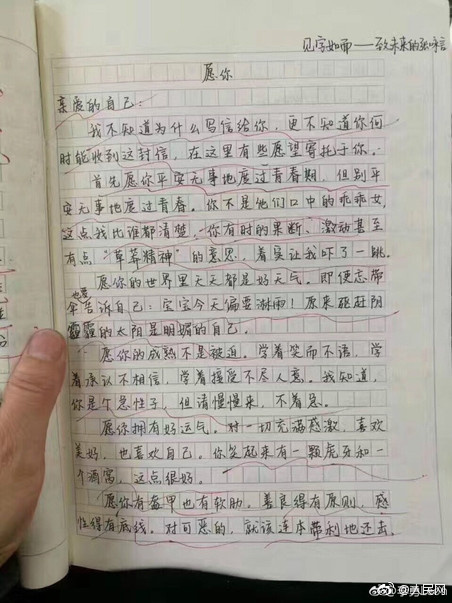 见字如面——致未来的孙味言
愿你
亲爱的自己：
我不知道为什么写信给你，更不知道你何
时能收到这封信，在这里有些愿望寄托于你。
首先愿你平安无事地度过青春期，但别平
安无事地度过青春。你不是他们口中的乖乖女，
这点我比谁都清楚。你有时的果断、激动甚至
有点“草莽精神”的意思，着实让我吓了一跳。
愿你的世界里天天都是好天气。即便忘带
伞也要告诉自己：宝宝今天偏要淋雨！原来驱赶阴
霾的太阳是明媚的自己。
愿你的成熟不是被迫。学着笑而不语，学
着承认不相信，学着接受不尽人意。我知道，
你是个急性子，但请慢慢来，不着急。
愿你拥有好运气。对一切充满感激，喜欢
美好，也喜欢自己。你笑起来有一颗虎牙和一
个酒窝，这点很好。
愿你有盔甲也有软肋，善良得有原则，感
性得有底线。对可恶的，就该连本带利地还去。
@人民网